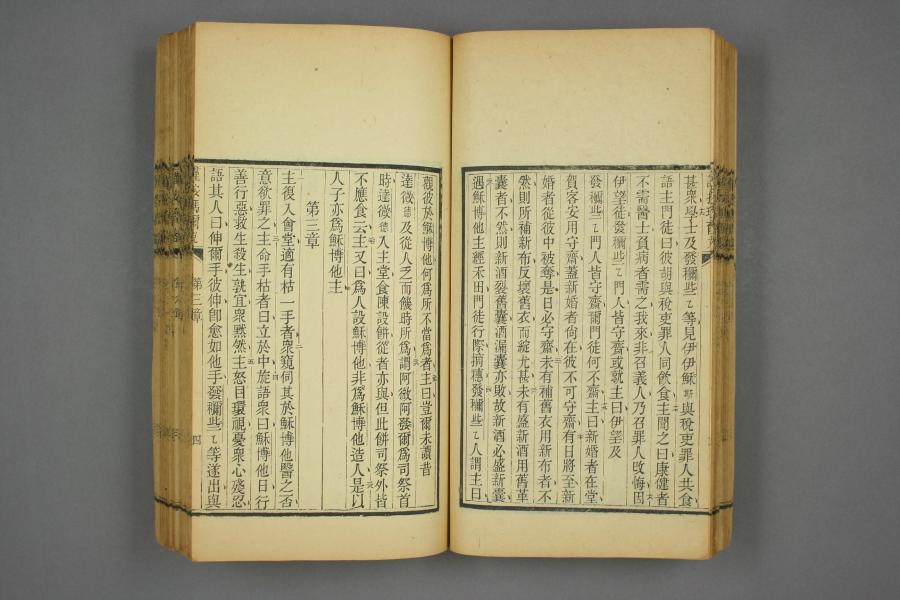 甚衆學士及發穪些ㄟ等見伊伊穌斯與稅吏罪人共食
語主門徒曰彼胡與稅吏罪人同飲食主聞之曰康健者
不需醫士負病者需之我來非召義人乃召罪人攺悔因
伊望徒發穪些ㄟ門人皆守齋或就主曰伊望及
發穪些ㄟ門人皆守齋爾門徒何不齋主曰新婚者在堂
賀客安用守齋蓋新婚者尙在彼不可守齋有日將至新
婚者從彼中被奪是日必守齋未有補舊衣用新布者不
然則所補新布反壞舊衣而綻尤甚未有盛新酒用舊革
囊者不然則新酒裂舊囊酒漏囊亦敗故新酒必盛新囊
遇穌博他主經禾田門徒行際摘穗發穪些ㄟ人謂主曰
觀彼於穌博他何爲所不當爲者主曰豈爾未讀昔
達微德及從人乏而饑時所爲謂阿微阿發爾爲司祭首
時達微德入主堂食陳設餅從者亦與但此餅司祭外皆
不應食云主又曰爲人設穌博他非爲穌博他造人是以
人子亦爲穌博他主
第三章
主復入會堂適有枯一手者衆窺伺其於穌博他醫之否
意欲罪之主命手枯者曰立於中旋語衆曰穌博他日行
善行惡救生殺生孰宜衆黙然主怒目環視憂衆心殘忍
語其人曰伸爾手彼伸卽愈如他手發穪些ㄟ等遂出與
第三章
四